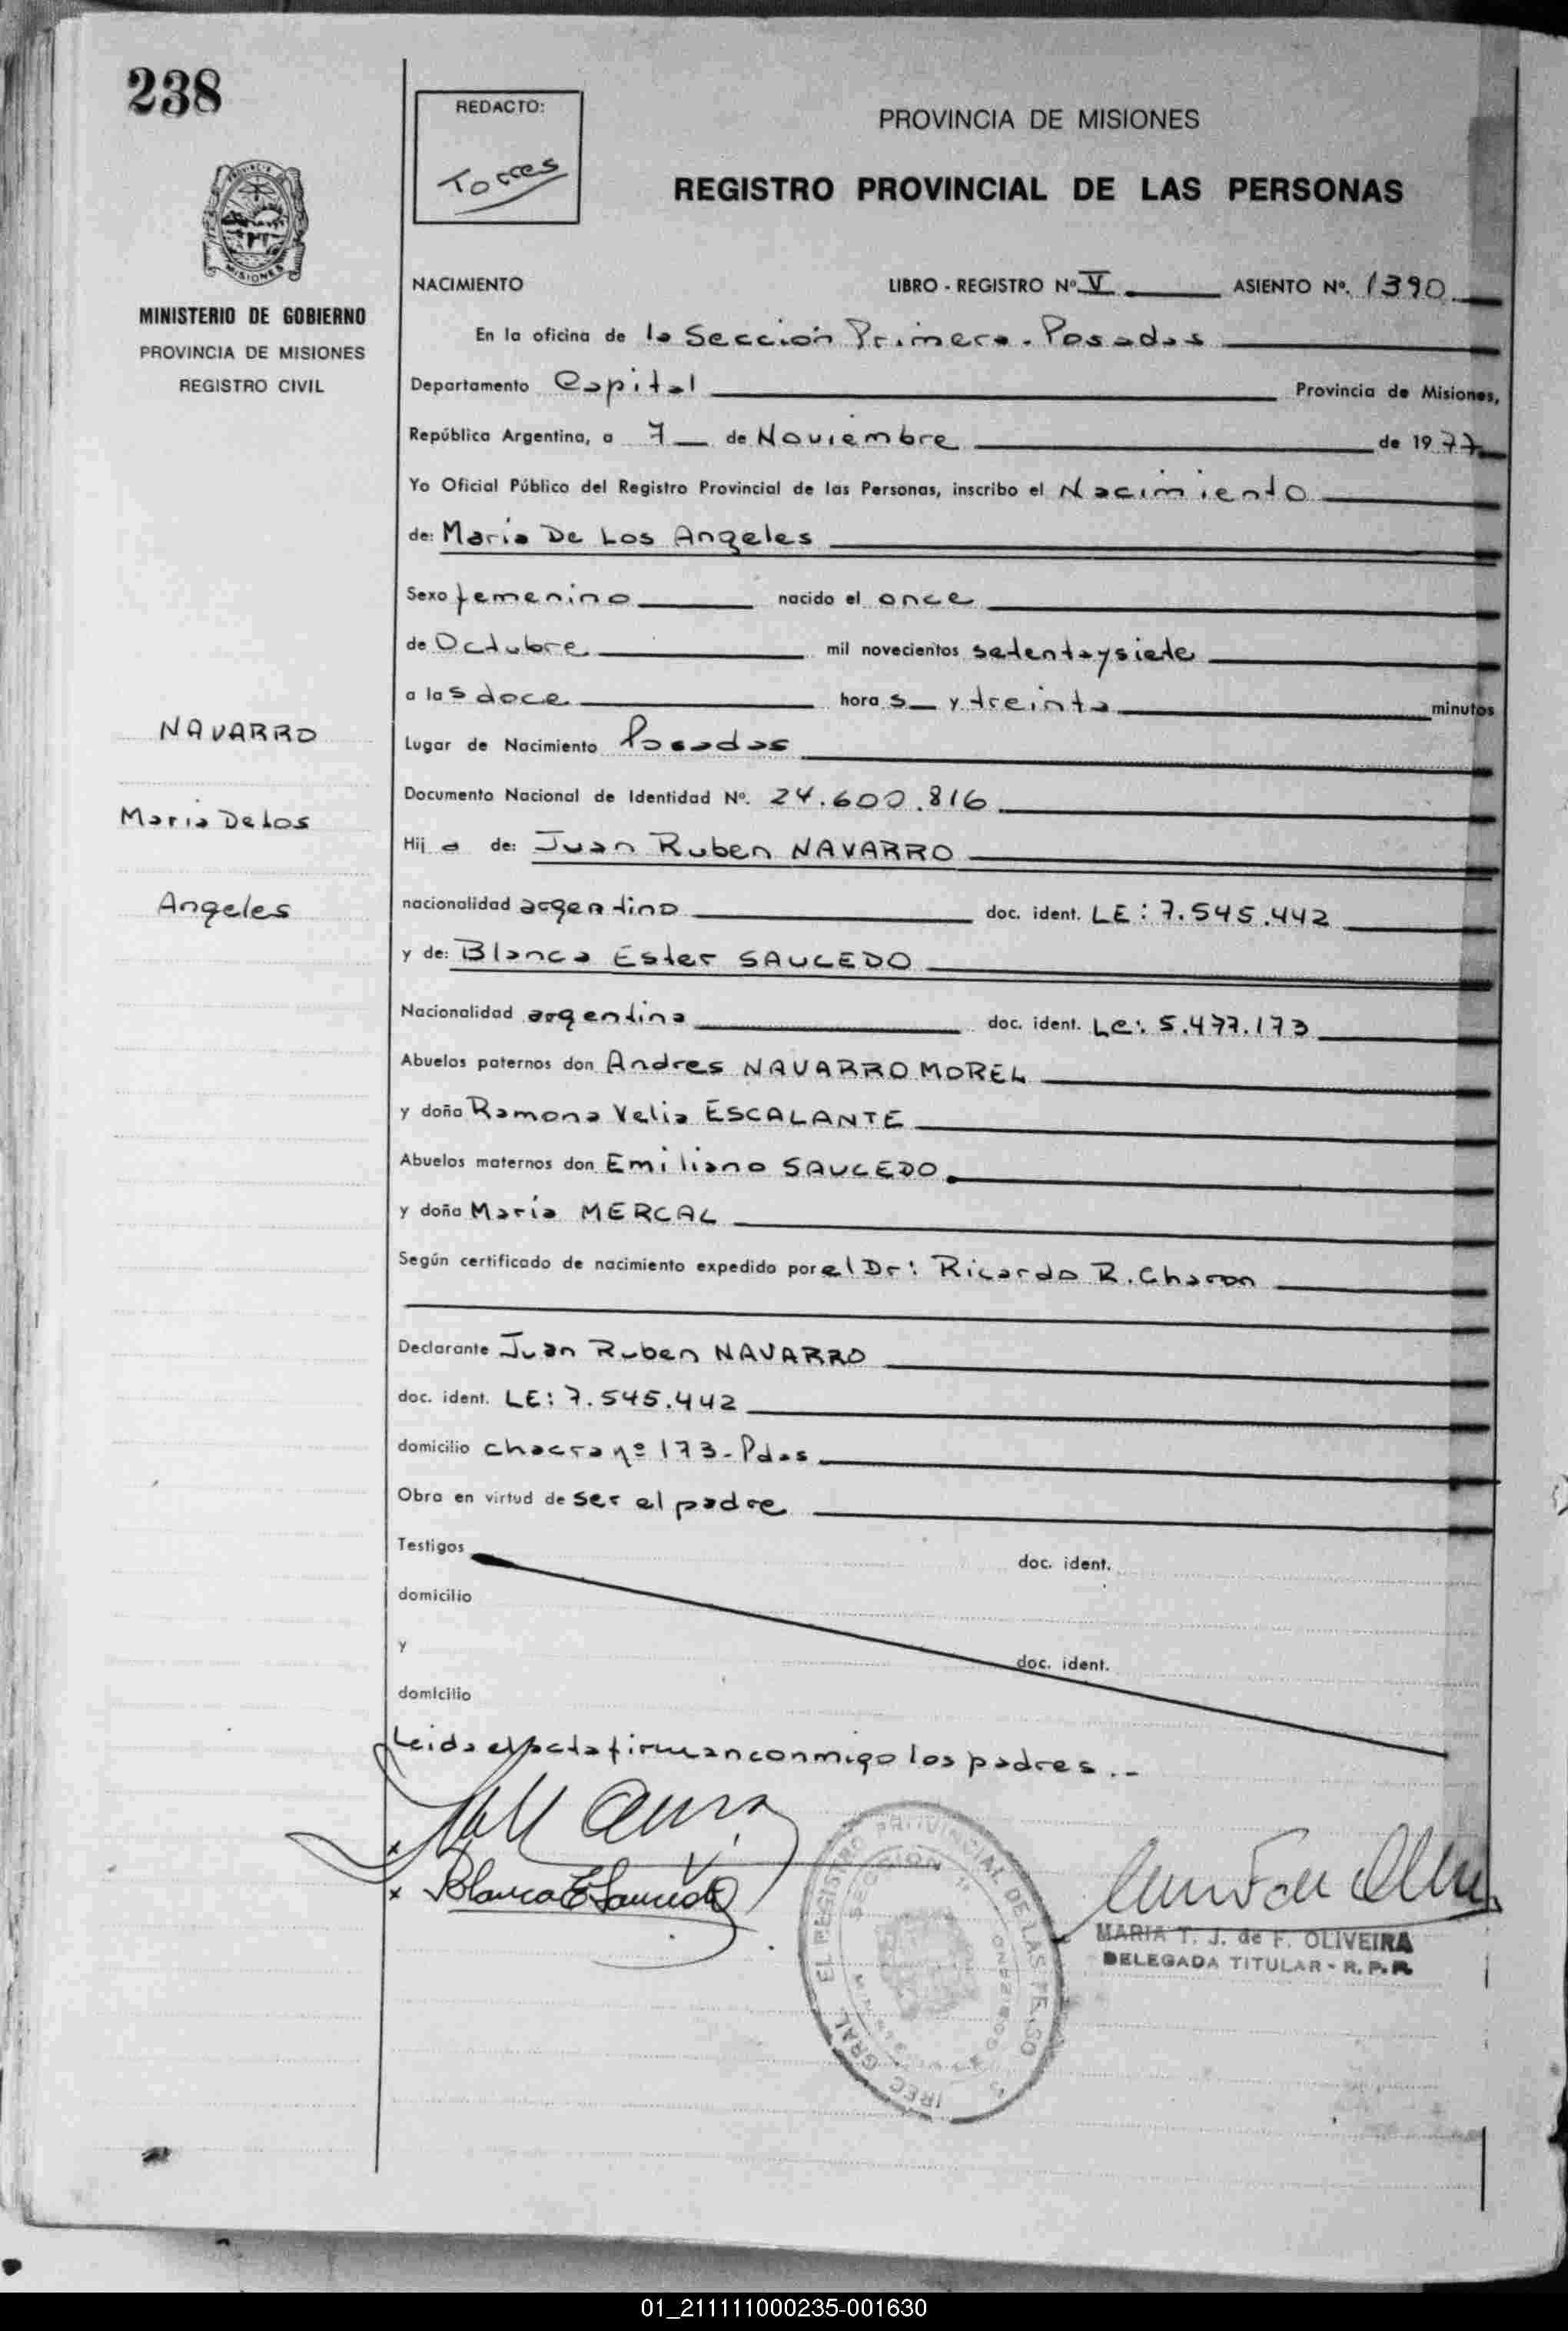 238
REDACTO:
Torres
PROVINCIA DE MISIONES
REGISTRO PROVINCIAL DE LAS PERSONAS
MISIONES
MINISTERIO DE GOBIERNO
PROVINCIA DE MISIONES
REGISTRO CIVIL
NACIMIENTO LIBRO - REGISTRO Nº V ASIENTO Nº. 1390
En la oficina de la Sección Primera - Posadas
Departamento Capital Provincia de Misiones,
República Argentina, a 7 de Noviembre de 1977
Yo Oficial Público del Registro Provincial de las Personas, inscribo el Nacimiento
de: Maria De Los Angeles
Sexo femenino nacido el once
de Octubre mil novecientos setentaysiete
a las doce horas y treinta minutos
NAVARRO
Lugar de Nacimiento Posadas
Documento Nacional de Identidad Nº. 24.600.816
Maria De Los
Hija de: Juan Ruben NAVARRO
Angeles
nacionalidad argentino doc. ident. LE: 7.545.442
y de: Blanca Ester SAUCEDO
Nacionalidad argentina doc. ident. LC: 5.477.173
Abuelos paternos don Andres NAVARRO MOREL
y doña Ramona Velia ESCALANTE
Abuelos maternos don Emiliano SAUCEDO
y doña María MERCAL
Según certificado de nacimiento expedido por el Dr: Ricardo R. Charon
Declarante Juan Ruben NAVARRO
doc. ident. LE: 7.545.442
domicilio chacra nº 173 - Pdas
Obra en virtud de ser el padre
Testigos doc. ident.
domicilio
y doc. ident.
domicilio
Leida el acta firman conmigo los padres.-
Blanca E Saucedo
EL REGISTRO PROVINCIAL DE LAS PERSO
SECCION 1ª
MARIA T. J. de F. OLIVEIRA
DELEGADA TITULAR - R. P. P.
01_211111000235-001630